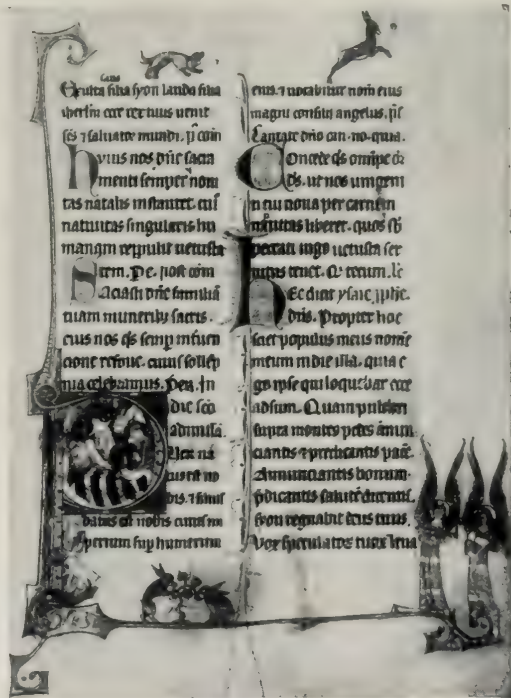 Exulta filia syon lauda filia
iherlm ecce rex tuus uenit
scs & saluator mundi. p̄ com
huius nos dñe sacra
menti semper nom
tas natalis instauret. cuiꝰ
natiuitas singularis hu
manam reppulit uetusta
tem. Pe. post com
Saciasti dñe familiā
tuam muneribꝫ sacris.
eius nos q̄s semp̄ inťuen
cione refoue. cuius sollēp
nia celebramus. Per. In
die sc̄o
ad missā
Uer na
tus est no
bis. & filius
datus est nobis cuius im
perium sup̄ humerum
eius. & uocabitur nom̄ eius
magni consilii angelus. p̄s
Cantate dño can. no. quia.
Concede q̄s omp̄e d̄s
d̄s. ut nos unigeni
ti tui noua per carnem
natiuitas liberet. quos sb̄
peccati iugo uetusta ser
uitus tenet. P̄ eundem. lc̄
Hec dicit ysaie ꝓphe.
dñs. Propter hoc
sciet populus meus nom̄
meum in die illa. quia e
go ipse qui loquebar ecce
adsum. Quam pulchri
supra montes pedes annun
ciantis & predicantis pacē.
Annunciantis bonum.
p̄dicantis salutē dicentis.
syon regnabit deus tuus.
Vox speculatoꝝ tuoꝝ leua